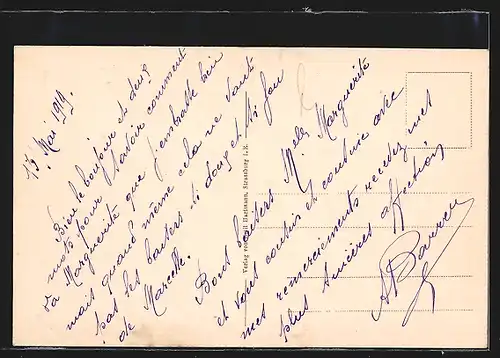 13 Mai 1919.
Bien le bonjour et deux
mots pour savoir comment
va Marguerite que j'embrasse bien
mais quand même cela ne vaut
pas les baisers si doux et si fou
de Marcelle.
Bons baisers Melle Marguerite
et vous cousin et cousine avec
mes remerciements recevez mes
plus sincères affections
Verlag von Emil Hartmann, Strassburg i. E.